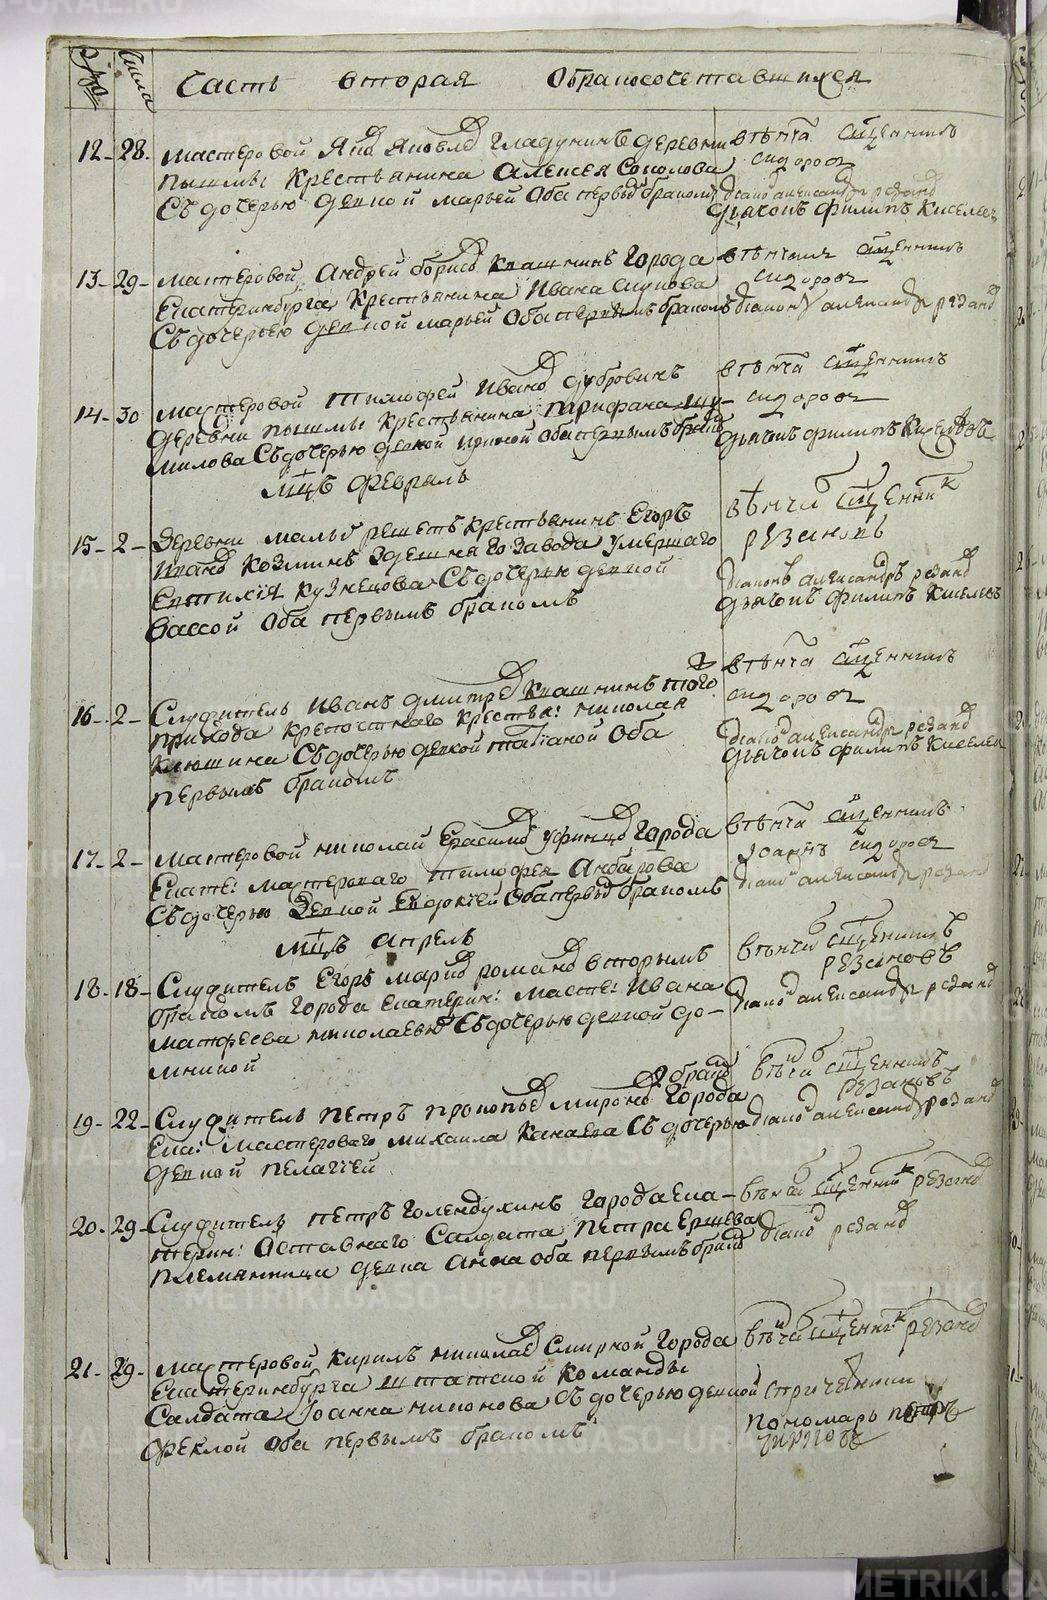 Числа
Часть вторая Обракосочетавшихся
12 - 28. Мастеровой Яков Гладунинъ деревни
Пышмы крестьянина Алексея Соколова
Съ дочерью девкой Марьей Оба первым браком
венчал священникъ
Сидоров
диакон александр резанов
дьячокъ филипъ Киселев
13 - 29 - Мастеровой Андрей борисов Квашнинъ Города
Екатеринбурга Крестьянина Ивана
Съ дочерью девкой марьей Оба первымъ бракомъ
венчал священникъ
Сидоров
диакон александр резанов
14 - 30 Мастеровой тимофей Иванов дубровинъ
деревни пышмы крестьянина парифана Шу-
милова Съ дочерью девкой ириной оба первымъ браком
венчал священникъ
Сидоров
дьячокъ филипъ Киселевъ
мцъ февраль
15 - 2 - Деревни малых решетъ крестьянинъ Егоръ
Иванов Козминъ Здешняго завода умершаго
Евтихія Кузнецова Съ дочерью девкой
Вассой Оба первымъ бракомъ
венчал священник
резановъ
диаконъ александръ резанов
дьячокъ филипъ Киселевъ
16 - 2 - Служитель Иванъ дмитрев Квашнинъ того
прихода крепостнаго крестья: николая
Клюшина Съ дочерью девкой татіаной Оба
первымъ бракомъ
венчал священникъ
Сидоров
диакон александр резанов
дьячокъ филипъ Киселев
17 - 2 - Мастеровой николай Герасимов Уфинцов города
Екате: мастероваго тимофея Анбарова
Съ дочерью Девкой Евдокіей Оба первым бракомъ
венчал священникъ
Іоаннъ Сидоров
диакон александр резанов
мцъ апрель
18 - 18 - Служитель Егоръ марков романов вторымъ
бракомъ города екатерин: масте: Ивана
матфеева николаевых Съ дочерью девкой До-
мникой
венчал священникъ
резановъ
диакон александр резанов
2 браком
19 - 22 - Служитель петръ прокопьев миронов города
Ека: мастероваго михаила Канаева Съ дочерью
девкой пелагией
венчал священникъ
резановъ
диакон александр резанов
20 - 29 - Служитель петръ Голендухинъ города ека-
терин: Отставнаго Салдата петра ершева
племянница девка Анна оба первымъ браком
венчал священник резанов
диакон резанов
21 - 29 - Мастеровой Кирилъ николаев Смирной города
екатеринбурга штатской команды
Салдата Іоанна никонова съ дочерью девкой
феклой оба первымъ бракомъ
венчал священник резанов
при венчании
пономарь петръ